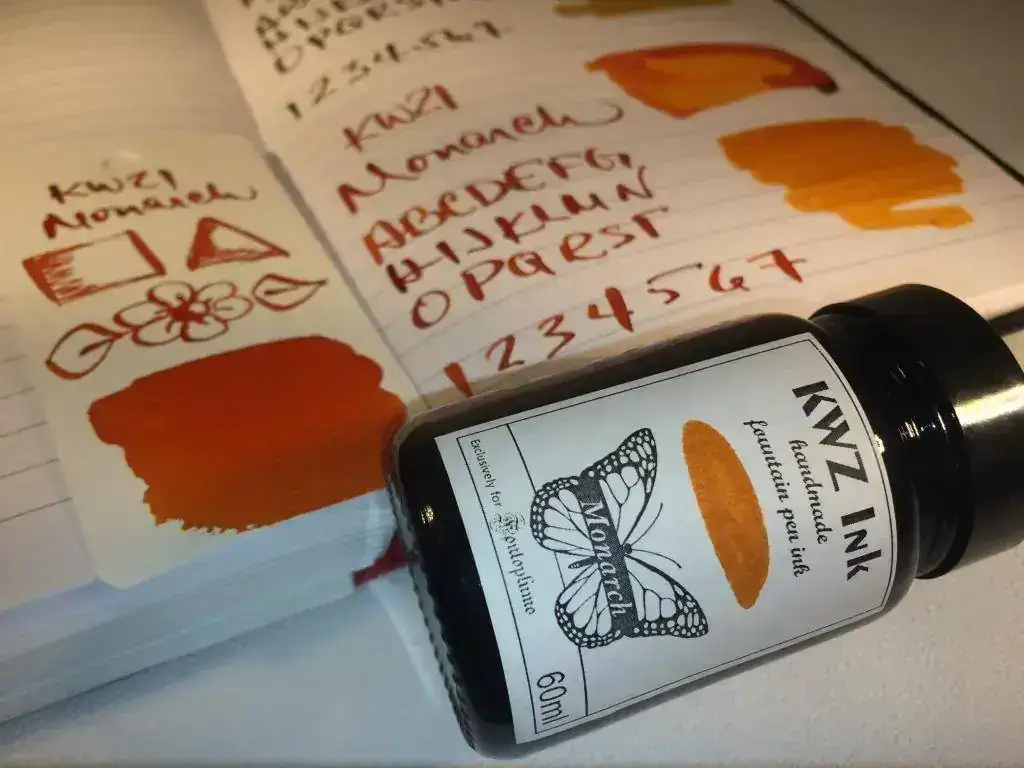 KWZI
Monarch
1234567
KWZI
Monarch
ABCDEFG
HIJKLMN
OPQRST
1234567
KWZ Ink
handmade
fountain pen ink
Monarch
Exclusively for Pontoplumo
60ml